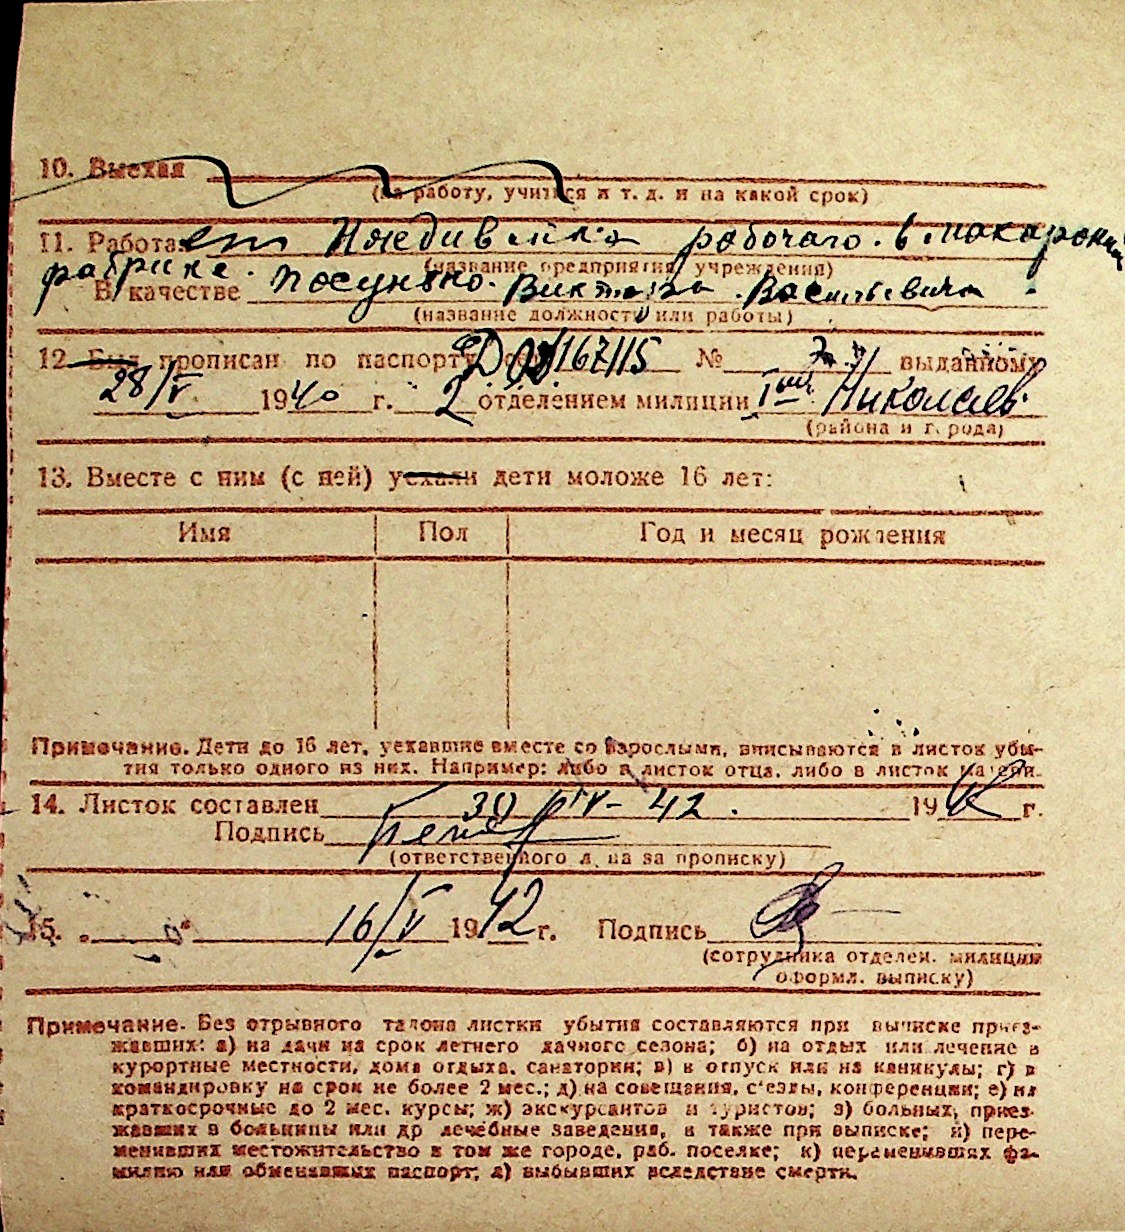 10. Выехал
(на работу, учиться и т. д. и на какой срок)
11. Работает Иждивенка рабочаго. в макарони
(название предприятия, учреждения)
фабрике.
В качестве Виктора Васильевича
(название должности или работы)
12. Был прописан по паспорту 167115 № выданному
28/V 1940 г. 2 отделением милиции Николаев.
(района и города)
13. Вместе с ним (с ней) уехали дети моложе 16 лет:
Имя Пол Год и месяц рождения
Примечание. Дети до 16 лет, уехавшие вместе со взрослыми, вписываются в листок убы-
тия только одного из них. Например: либо в листок отца, либо в листок матери.
14. Листок составлен 30 IV- 42. 19 г.
Подпись
(ответственного лица за прописку)
15. „ “ 16/V 1942 г. Подпись
(сотрудника отделен. милиции
оформл. выписку)
Примечание. Без отрывного талона листки убытия составляются при выписке приез-
жавших: а) на дачи на срок летнего дачного сезона; б) на отдых или лечение в
курортные местности, дома отдыха, санатории; в) в отпуск или на каникулы; г) в
командировку на срок не более 2 мес.; д) на совещания, с'езды, конференции; е) на
краткосрочные до 2 мес. курсы; ж) экскурсантов и туристов; з) больных, приез-
жавших в больницы или др лечебные заведения, а также при выписке; и) пере-
менивших местожительство в том же городе, раб. поселке; к) переменивших фа-
милию или обменявших паспорт; л) выбывших вследствие смерти.